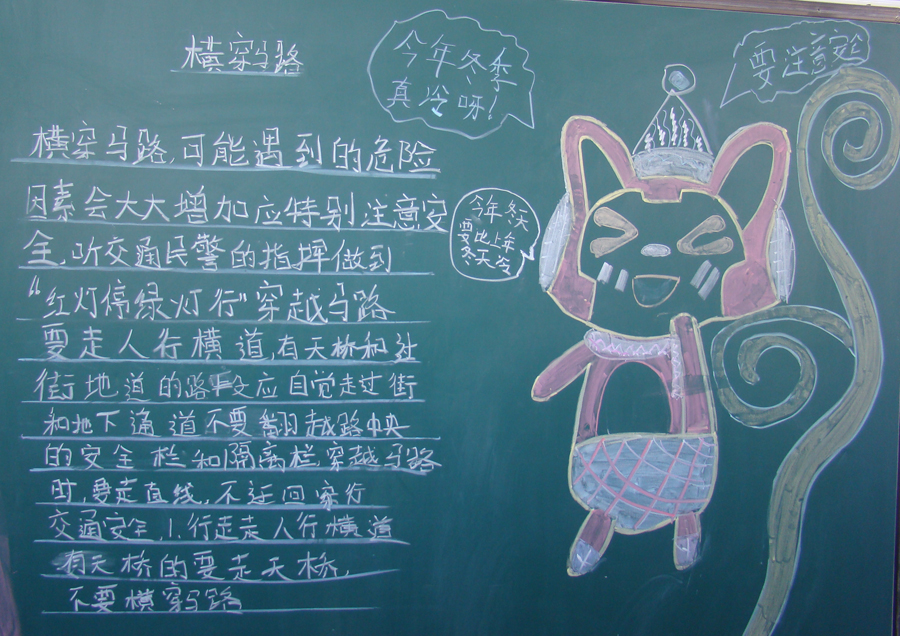 横穿马路
横穿马路,可能遇到的危险
因素会大大增加应特别注意安
全,听交通民警的指挥做到
“红灯停绿灯行”穿越马路
要走人行横道,有天桥和过
街地道的路段应自觉走过街
和地下通道不要翻越路中央
的安全栏和隔离栏,穿越马路
时,要走直线,不迂回穿行
交通安全,1.行走走人行横道
有天桥的要走天桥,
不要横穿马路
今年冬季
真冷呀!
今年冬天
要比上年
冬天冷
要注意安全